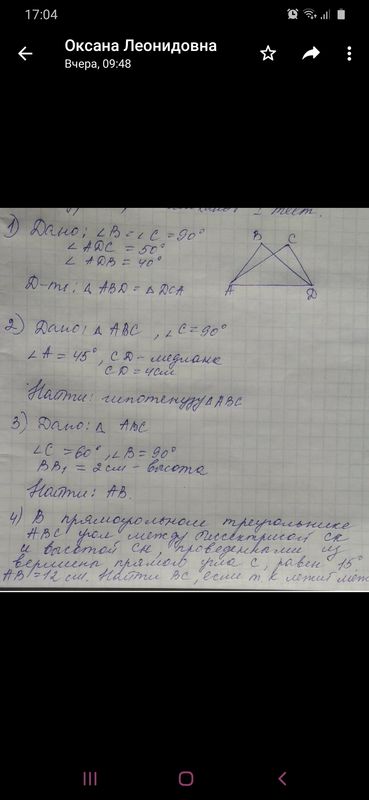 17:04
Оксана Леонидовна
Вчера, 09:48
1 тест.
1) Дано: ∠B = ∠C = 90°
∠ADC = 50°
∠ADB = 40°
Д-ть: △ABD = △DCA
B C
A D
2) Дано: △ABC, ∠C = 90°
∠A = 45°, CD - медиана
CD = 4см
Найти: гипотенузу △ABC
3) Дано: △ABC
∠C = 60°, ∠B = 90°
BB₁ = 2см - высота
Найти: AB.
4) В прямоугольном треугольнике
ABC угол между биссектрисой CK
и высотой CH, проведёнными из
вершины прямого угла C, равен 15°.
AB = 12 см. Найти BC, если т. K лежит меж